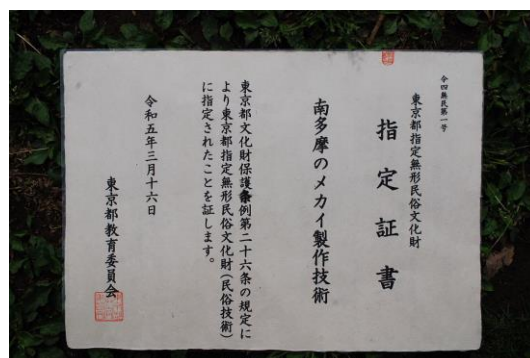 令四無民第一号
東京都指定無形民俗文化財
指定証書
南多摩のメカイ製作技術
東京都文化財保護条例第二十六条の規定に
より東京都指定無形民俗文化財(民俗技術)
に指定されたことを証します。
令和五年三月十六日
東京都教育委員会